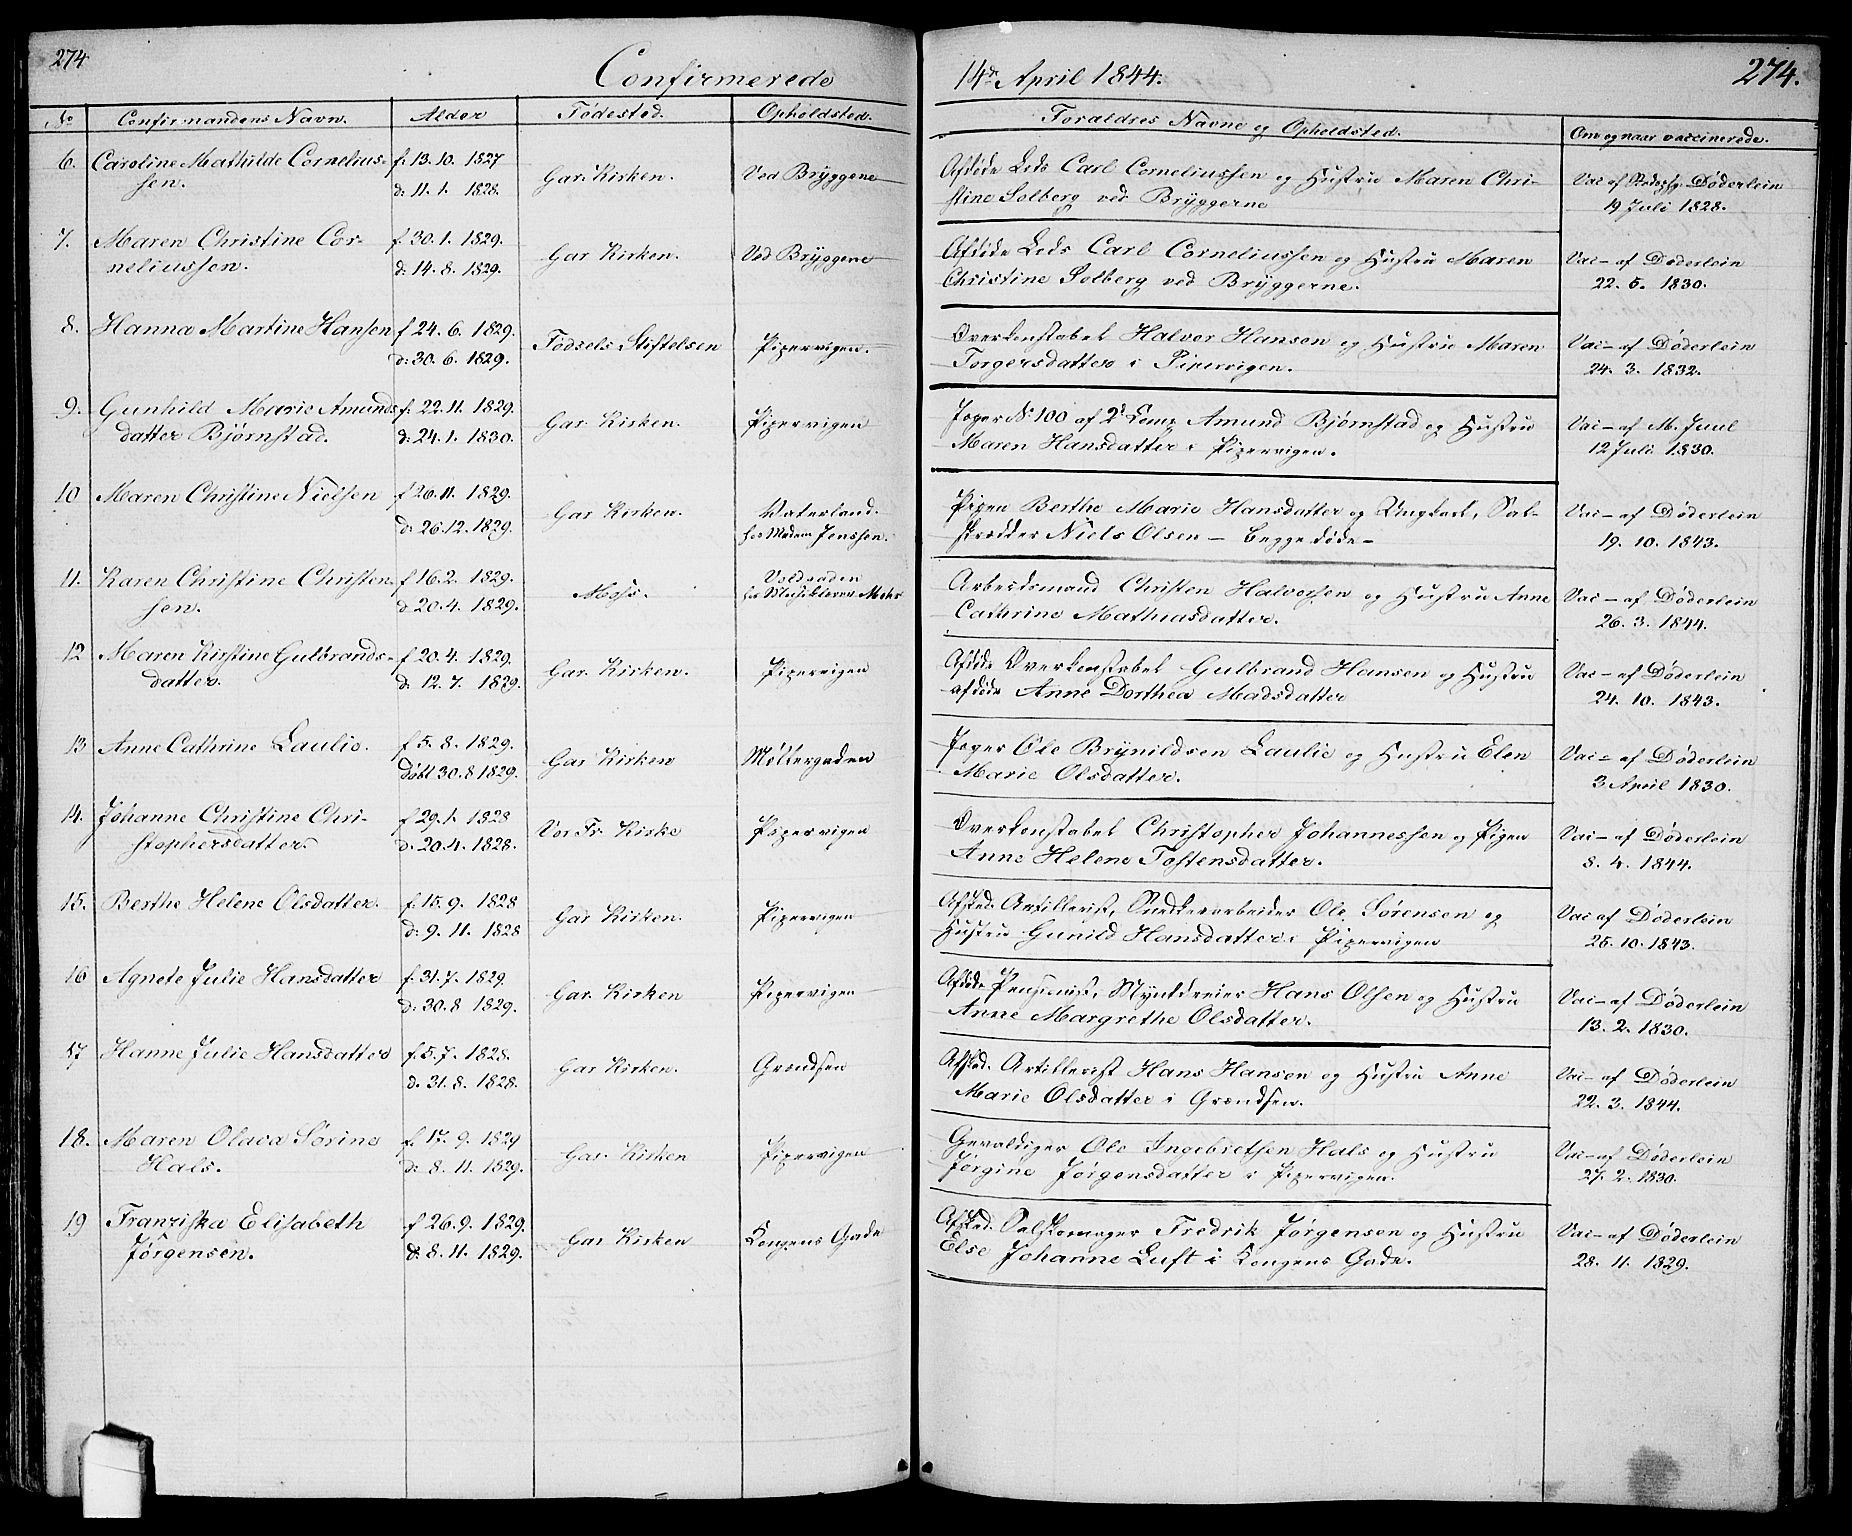 274
Confirmerede
No Confirmandens Navn. Alder Fødested. Opholdsted.
6. Caroline Mathilde Cornelius- f. 13. 10. 1827 Gar. Kirken. Ved Bryggene
sen. d: 11. 1. 1828.
7. Maren Christine Cor- f. 30. 1. 1829. Gar Kirken. Ved Bryggene
neliussen. d: 14. 8. 1829.
8. Hanna Martine Hansen f 24. 6. 1829. Fødsels Stiftelsen Pipervigen.
d: 30. 6. 1829.
9. Gunhild Marie Amunds f. 22. 11. 1829. Gar. Kirken. Pipervigen
datter Bjørnstad. d: 24. 1. 1830.
10 Maren Christine Nielsen f 26. 11. 1829. Gar Kirken. Vaterland.
d: 26. 12. 1829. hos Madm Jenssen.
11. Karen Christine Christen- f 16. 2. 1829. Moss. Voldgaden
sen. d: 20. 4. 1829. hos
12 Maren Kirstine Gulbrands- f 20. 4. 1829. Gar. Kirken. Pipervigen
datter. d: 12. 7. 1829.
13 Anne Cathrine Laulie. f 5. 8. 1829. Gar Kirken Møllergaden
døbt 30. 8 1829.
14. Johanne Christine Chri- f 29. 1. 1828 Vor Fr. Kirke Pipervigen
stophersdatter. d. 20. 4. 1828.
15. Berthe Helene Olsdatter. f. 15. 9. 1828 Gar Kirken. Pipervigen
d: 9. 11. 1828
16 Agnete Julie Hansdatter f. 31. 7. 1829. Gar. Kirken Pipervigen
d: 30. 8 1829.
17 Hanne Julie Hansdatter f. 5. 7. 1828. Gar Kirken. Grændsen
d. 31. 8. 1828.
18. Maren Olava Sørine f. 17. 9. 1829 Gar. Kirken Pipervigen
Hals. d: 8. 11. 1829.
19 Franziska Elisabeth f 26. 9. 1829. Gar Kirken Kongens Gade
Jørgensen. d: 8. 11. 1829.
14de April 1844. 274.
Forældres Navne og Opholdsted. Om og naar vaccinerede.
Afdøde Leds Carl Corneliussen og Hustru Maren Chri- Vac af Döderlein
stine Solberg ved Bryggerne 19 Juli 1828.
Afdøde Leds Carl Corneliussen og Hustru Maren Vac– af Döderlein
Christine Solberg ved Bryggerne. 22. 5. 1830.
Overkonstabel Halvor Hansen og Hustru Maren Vac– af Döderlein
Torgersdatter i Pipervigen. 24. 3. 1832.
Jæger No 100 af 2d Comp Amund Bjørnstad og Hustru Vac– af M. Juul
Maren Hansdatter i Pipervigen. 12 Juli 1830.
Pigen Berthe Marie Hansdatter og Ungkarl, Sal- Vac– af Döderlein
skrædder Niels Olsen – begge døde – 19. 10. 1843.
Arbeidsmand Christen Halvorsen og Hustru Anne Vac – af Döderlein
Cathrine Mathiasdatter. 26. 3. 1844.
Afdøde Overkonstabel Gulbrand Hansen og Hustru Vac– af Döderlein
afdøde Anne Dorthea Madsdatter 24. 10. 1843.
Jæger Ole Brynildsen Laulie og Hustru Elen Vac– af Döderlein
Marie Olsdatter. 3 April 1830.
Overkonstabel Christopher Johannessen og Pigen Vac– af Döderlein
Anne Helene Tostensdatter. 8. 4. 1844.
Afsked. Artillerist, Snedkerarbeider Ole Sörensen og Vac af Döderlein
Hustru Gunild Hansdatter i Pipervigen 25. 10. 1843.
Afdøde Pensionist, Myntdreier Hans Olsen og Hustru Vac– af Döderlein
Anne Margrethe Olsdatter. 13. 2. 1830.
Afsked. Artillerist Hans Hansen og Hustru Anne Vac– af Döderlein
Marie Olsdatter i Grændsen. 22. 3. 1844.
Gevaldiger Ole Ingebretsen Hals og Hustru Vac– af Döderlein
Jørgine Jørgensdatter i Pipervigen. 27. 2. 1830.
Afsked. Salskomager Fredrik Jørgensen og Hustru Vac– af Döderlein
Else Johanne Luft i Kongens Gade. 28. 11. 1829.